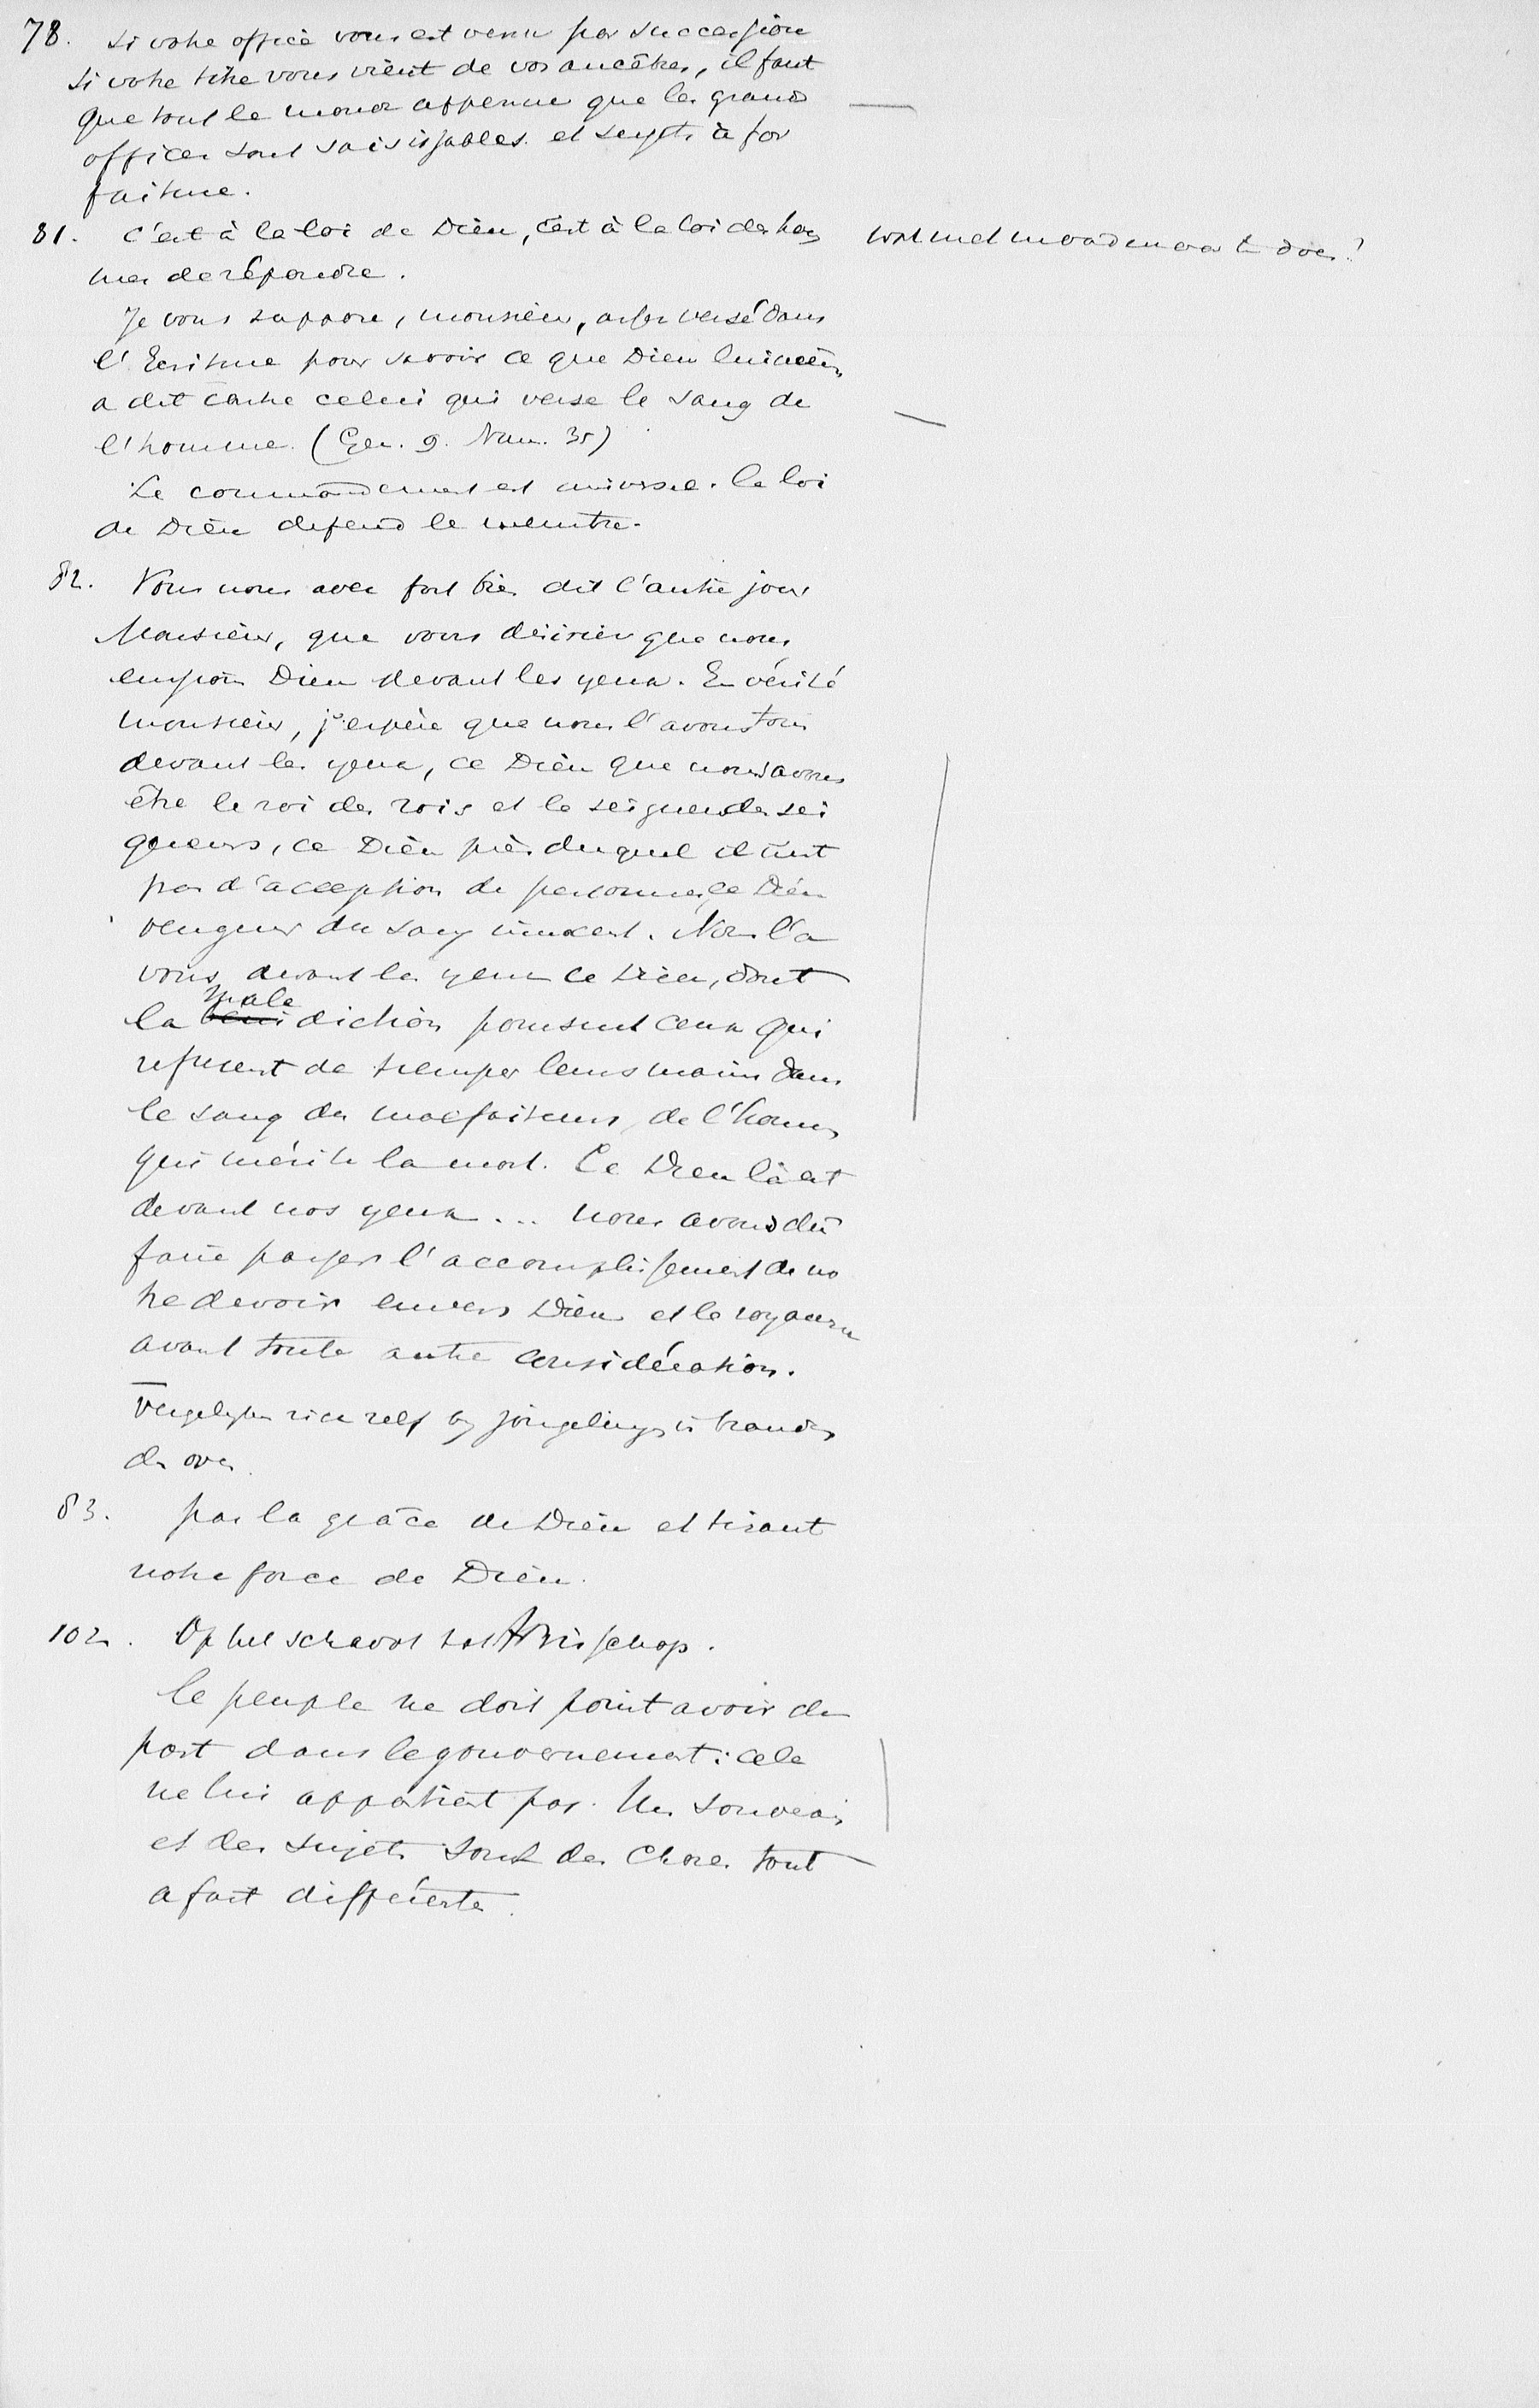 78. Si votre office vous est venu par succession
si votre titre vous vient de vos ancêtres, il faut
que tout le monde apprenne que les grands
offices sont saisissables et sujets à for
faiture.
81. C'est à la loi de Dieu, c'est à la loi des hom
mes de répondre.
wat met moord en ... te doen?
Je vous suppose, monsieur, assez versé dans
l'Ecriture pour savoir ce que Dieu lui même
a dit contre celui qui verse le sang de
l'homme. (Gen. 9. Num. 35)
Le commandement est universel. la loi
de Dieu defend le meurtre.
82. Vous nous avez fort bien dit l'autre jour
Monsieur, que vous désiriez que nous
eussions Dieu devant les yeux. En vérité
monsieur, j'espère que nous l'avons tous
devant les yeux, ce Dieu que nous savons
être le roi des rois et le seigneur des sei
gneurs, ce Dieu près duquel il n'est
pas d'acception de personnes, ce Dieu
vengeur du sang innocent. Nous l'a
vons devant les yeux ce Dieu, dont
la malediction poursuit ceux qui
refusent de tremper leurs mains dans
le sang des malfaiteurs, de l'homme
qui mérite la mort. Ce Dieu là est
devant nos yeux ... nous avons dû
faire passer l'accomplissement de no
tre devoir envers Dieu et le royaume
avant toute autre considération.
Vergelyken zich zelf by jongelingen in branden
den oven
83. par la grâce de Dieu et tirant
notre force de Dieu.
102. Op het schavot tot Bisschop.
le peuple ne doit point avoir de
part dans le gouvernement: cela
ne lui appartient pas. Un souverain
et des sujets sont des choses tout
a fait différentes.